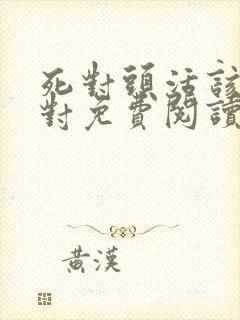 死對頭活該
對免費閱讀
黃漢